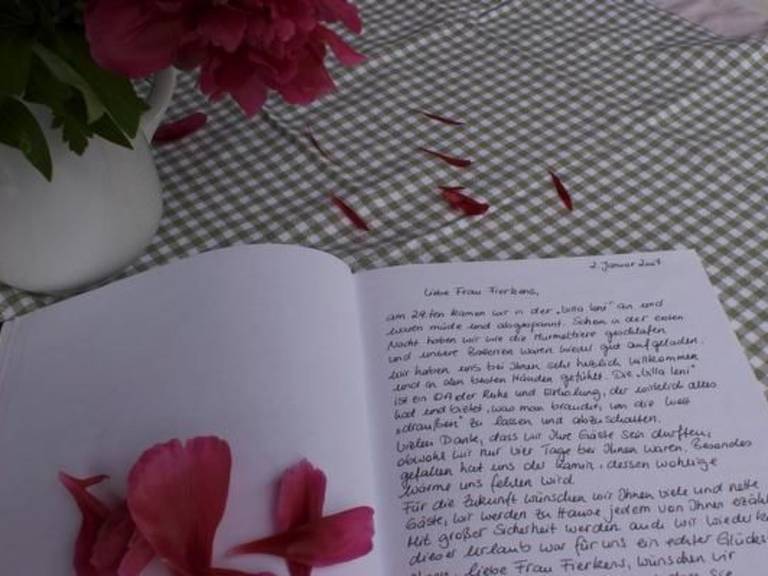 2. Januar 2007
Liebe Frau Fierkens,
am 29.ten kamen wir in der „Villa Leni" an und
waren müde und abgespannt. Schon in der ersten
Nacht haben wir wie die Murmeltiere geschlafen
und unsere Batterien waren wieder gut aufgeladen.
Wir haben uns bei Ihnen sehr herzlich willkommen
und in den besten Händen gefühlt. Die „Villa Leni"
ist ein Ort der Ruhe und Erholung, der wirklich alles
hat und bietet, was man braucht, um die Welt
„draußen" zu lassen und abzuschalten.
Vielen Dank, dass wir Ihre Gäste sein durften,
obwohl wir nur vier Tage bei Ihnen waren. Besonders
gefallen hat uns der Kamin, dessen wohlige
Wärme uns fehlen wird.
Für die Zukunft wünschen wir Ihnen viele und nette
Gäste, wir werden zu Hause jedem von Ihnen
Mit großer Sicherheit werden auch wir
dieser Urlaub war für uns ein echter
liebe Frau Fierkens, wünschen wir
Sie